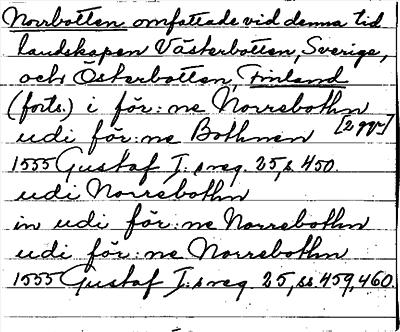 Norrbotten omfattade vid denna tid
landskapen Västerbotten, Sverige,
och Österbotten, Finland
(forts.) i för:ne Norrebothn
udi för:ne Bothnen [2 ggr]
1555 Gustaf I:s reg. 25, s. 450.
udi Norrebothn
in udi för:ne Norrebothn
udi för:ne Norrebothn
1555 Gustaf I:s reg. 25, ss. 459, 460.